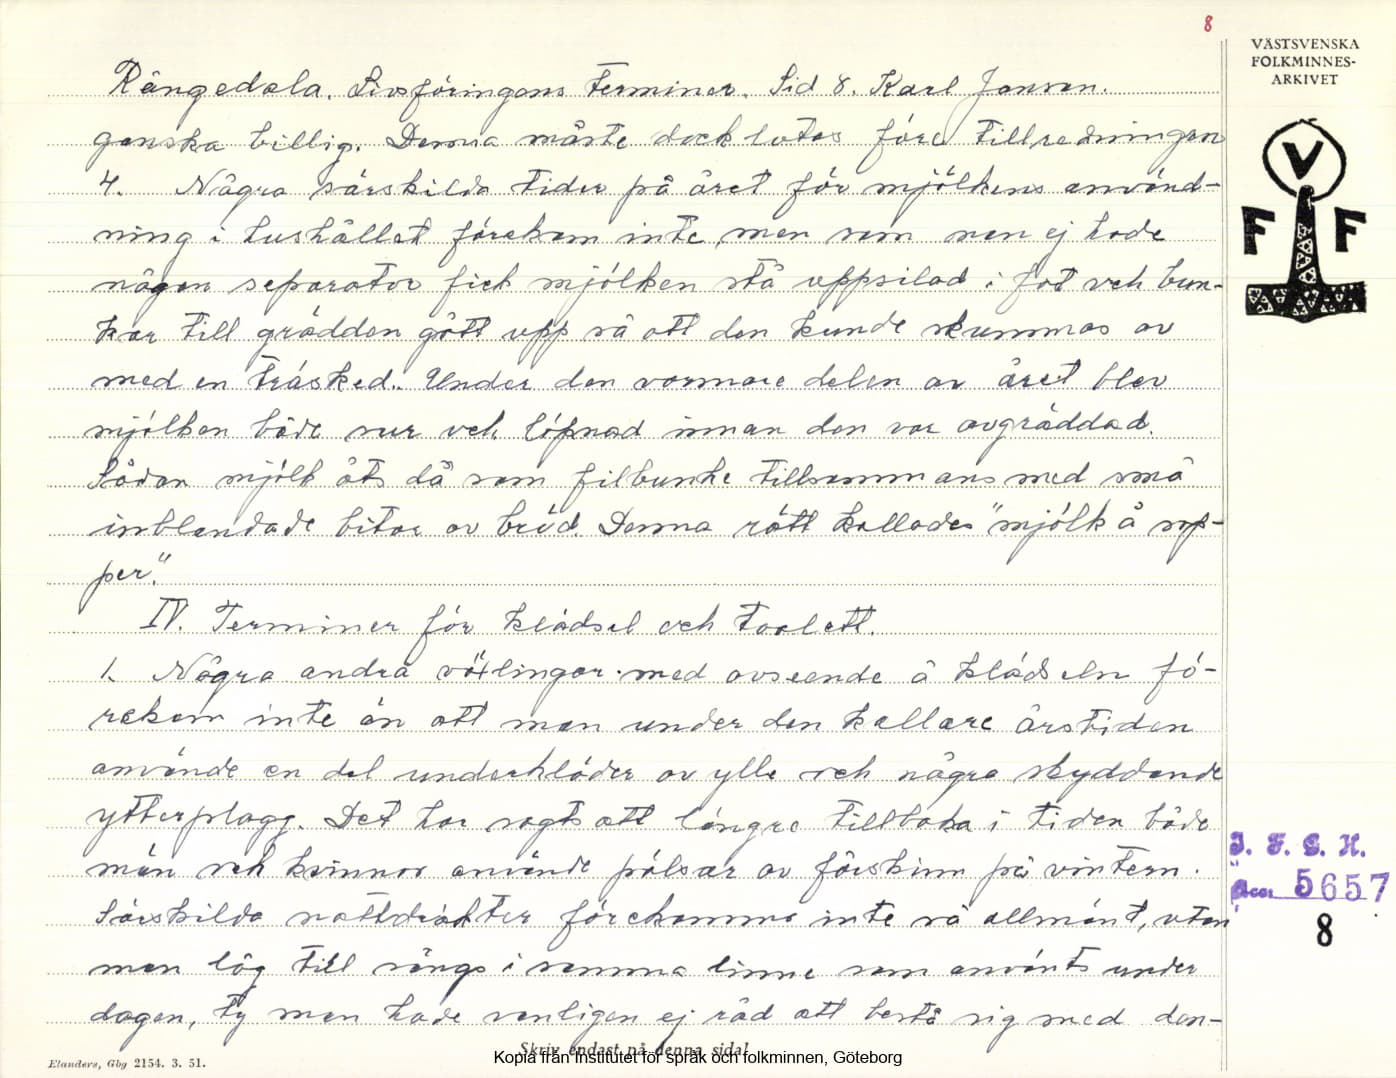 8
VÄSTSVENSKA
FOLKMINNES-
ARKIVET
Rångedala. Livsföringens terminer. Sid 8. Karl Jonsson.
ganska billig. Denna måste dock lutas före tillredningen
4. Några särskilda tider på året för mjölkens använd-
ning i hushållet förekom inte, men som man ej hade
någon separator fick mjölken stå uppsilad i fat och bun-
kar till grädden gått upp så att den kunde skummas av
med en träsked. Under den varmare delen av året blev
mjölken både sur och löpnad innan den var avgräddad.
Sådan mjölk åts då som filbunke tillsammans med små
inblandade bitar av bröd. Denna rätt kallades "mjölk å sup-
per."
IV. Terminer för klädsel och toalett.
1. Några andra växlingar med avseende å klädseln fö-
rekom inte än att man under den kallare årstiden
använde en del underkläder av ylle och några skyddande
ytterplagg. Det har sagts att längre tillbaka i tiden både
män och kvinnor använde pälsar av fårskinn på vintern.
Särskilda nattdräkter förekommo inte så allmänt, utan
man låg till sängs i samma linne som använts under
dagen, ty man hade vanligen ej råd att bestå sig med den-
V
F F
I. F. G. H.
Acc. 5657
8
Skriv endast på denna sida!
Kopia från Institutet för språk och folkminnen, Göteborg
Elanders, Gbg 2154. 3. 51.